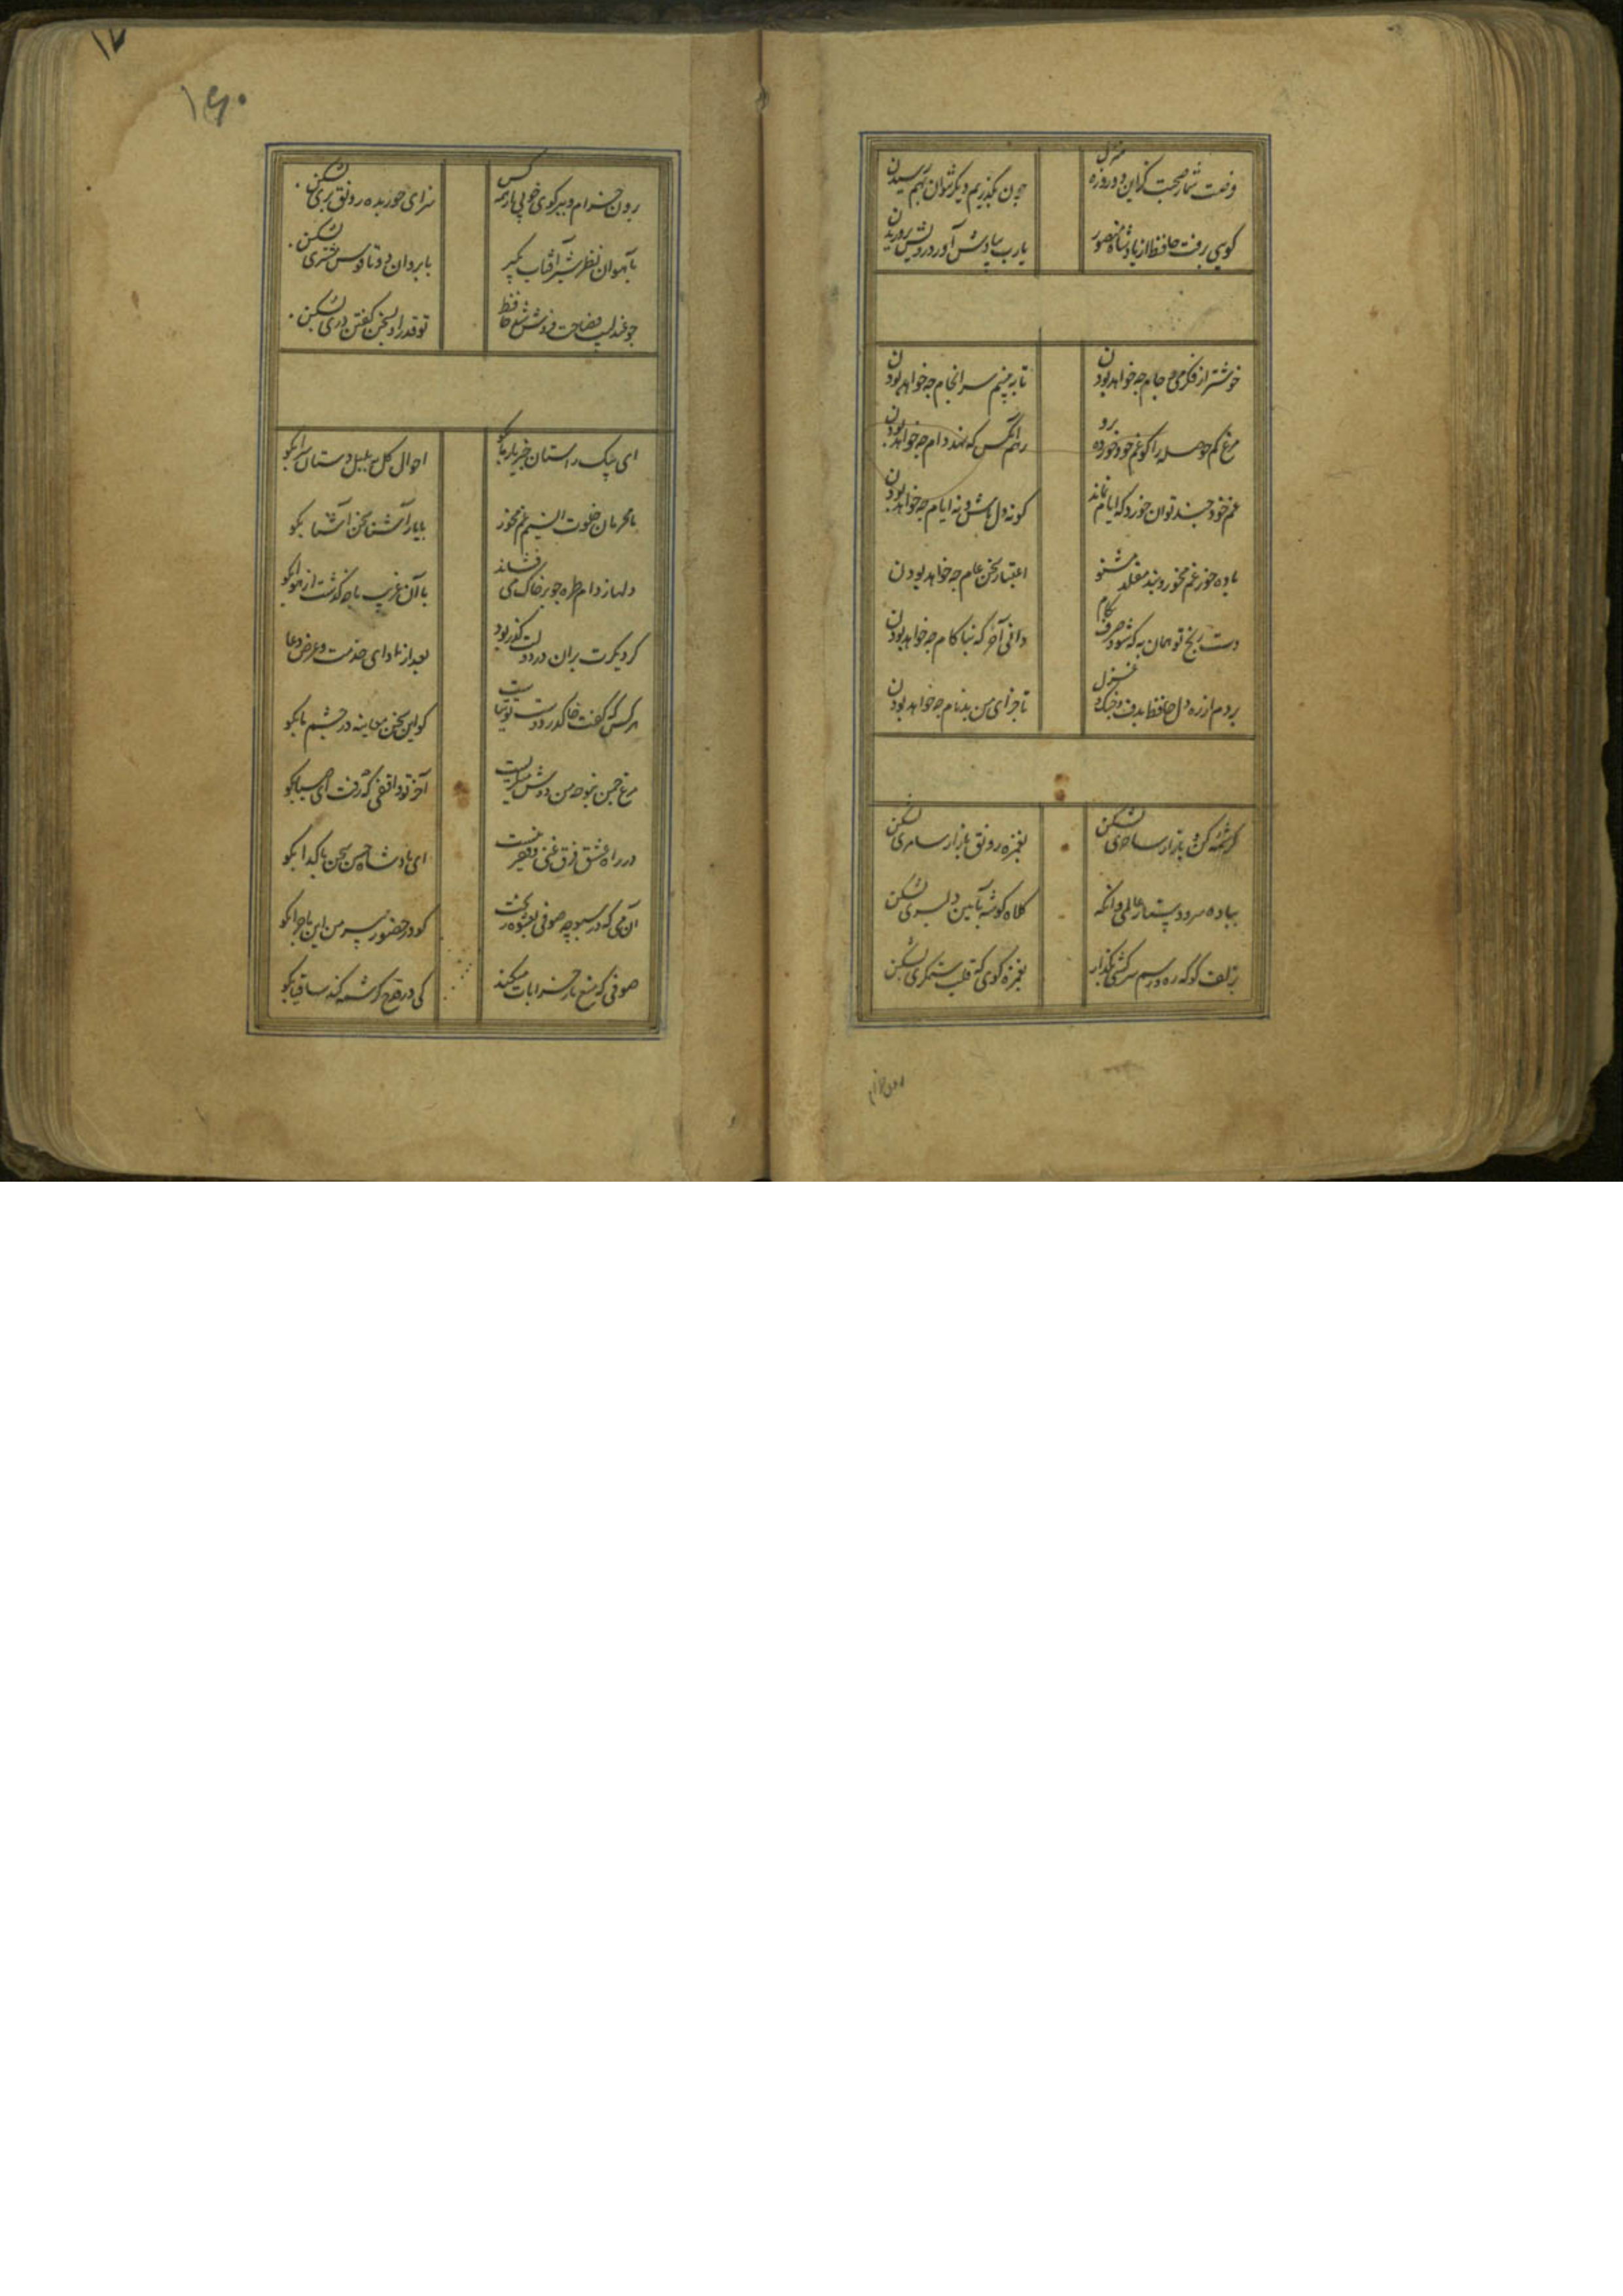 فرصت شمار صحبت کزین دوروزه منزل
چون بگذریم دیگر نتوان بهم رسیدن
کویی برفت حافظ از یاد شاه منصور
یارب بیادش آور درویش پروریدن
خوشتر از فکر می و جام چه خواهد بودن
تا ببینم سرانجام چه خواهد بودن
مرغ کم حوصله را کو غم خود خور ده رو
رحم انکس که نهد دام چه خواهد بودن
غم خود چند توان خورد که ایام نماند
کو نه دل باش و نه ایام چه خواهد بودن
باده خور غم مخور و پند مقلد مشنو
اعتبار سخن عام چه خواهد بودن
دست رنج تو همان به که شود صرف بکام
دانی آخر که بناکام چه خواهد بودن
بردم از ره دل حافظ بدف و چنک و غزل
تا جزای من بدنام چه خواهد بودن
کرشمه کن و بازار ساحری بشکن
بغمزه رونق بازار سامری بشکن
بباده سر و دستار عالمی وانکه
کلاه کوشه بآیین دلبری بشکن
بزلف کو که ره و رسم سرکشی بکذار
بغمزه کوی که قلب ستمکری بشکن
۱۷
۱۶۰
برون خرام و ببر کوی خوبی از همه کس
سزای حور بده رونق پری بشکن
بآهوان نظر شیر آفتاب بکیر
بابروان دوتا قوس مشتری بشکن
چو عندلیب فصاحت فروش شد حافظ
تو قدر او بسخن کفتن دری بشکن
ای پیک راستان خبر یار ما بکو
احوال کل به بلبل دستان سرا بکو
ما محرمان خلوت انسیم غم مخور
با یار آشنا سخن آشنا بکو
دلها ز دام طره چو بر خاک می فشاند
با آن غریب ما چه کذشت از هوا بکو
کر دیکرت بران در دولت کذر بود
بعد از ادای خدمت و عرض دعا
هر کس که کفت خاک در دوست توتیاست
کو این سخن معاینه در چشم ما بکو
مرغ چمن بنوحه من دوش میکریست
آخر تو واقفی که چه رفت ای صبا بکو
در راه عشق فرق غنی و فقیر نیست
ای پادشاه حسن سخن با کدا بکو
آن می که در سبو چه صوفی بعشوه ریخت
کو در حضور پیر من این ماجرا بکو
صوفی که منع ما ز خرابات میکند
کی در قدح کرشمه کند ساقیا بکو